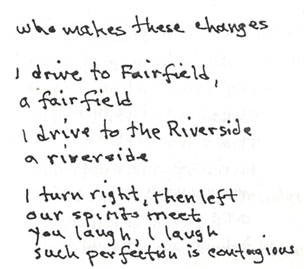 who makes these changes
I drive to Fairfield,
a fairfield
I drive to the Riverside
a riverside
I turn right, then left
our spirits meet
you laugh, I laugh
such perfection is contagious